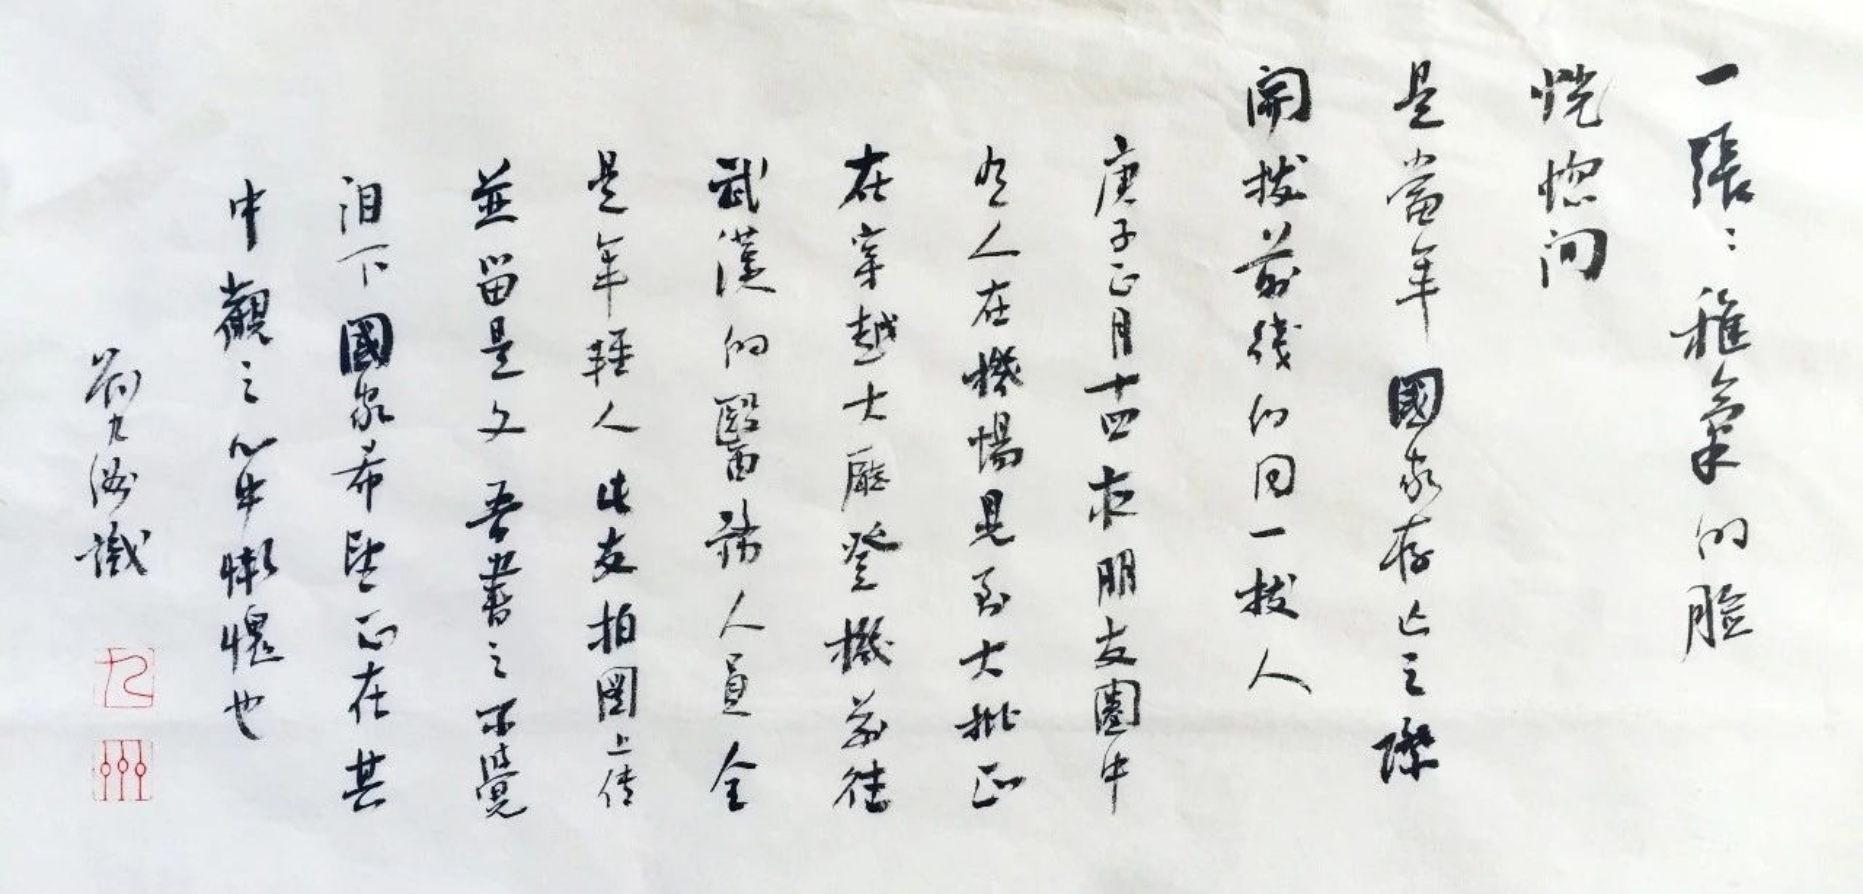 一張：稚氣的脸
恍惚间
是當年國家存亡之際
開拔前线的同一拔人
庚子正月十四在朋友圈中
有人在機場見到大批正
在穿越大廳登機前往
武漢的醫務人員全
是年輕人此友拍圖上传
並留是文吾書之不覺
泪下國家希望正在其
中觀之心中慚愧也
九洲識